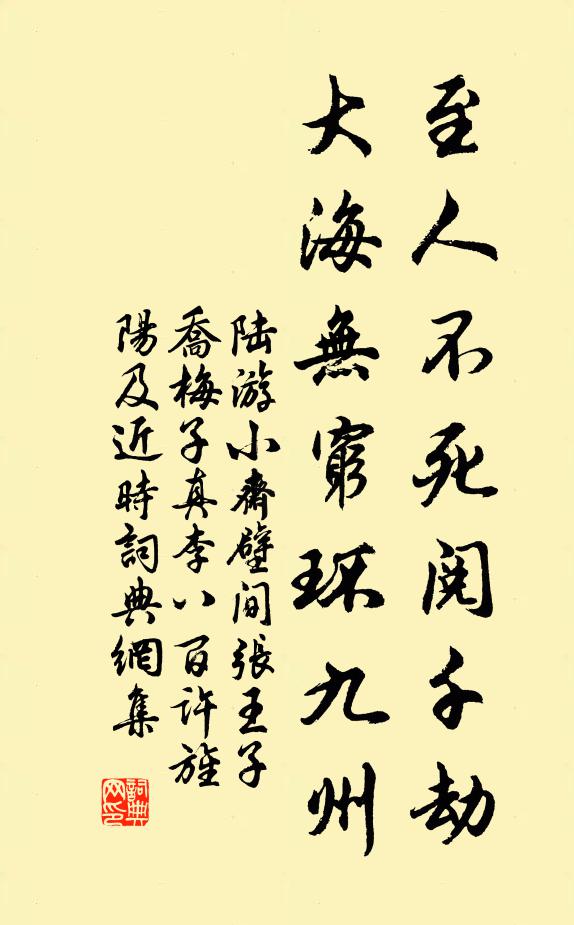 至人不死閱千劫
大海無窮环九州
陆游小齋壁间張王子
喬梅子真李八百许旌
陽及近時詞典網集
詞典
网印